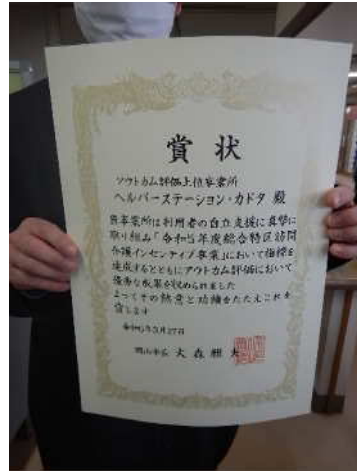 賞状
アウトカム評価上位事業所
ヘルパーステーション・カドタ 殿
貴事業所は利用者の自立支援に真摯に
取り組み「令和5年度総合特区訪問
介護インセンティブ事業」において指標を
達成するとともにアウトカム評価において
優秀な成果を収められました
よってその熱意と功績をたたえこれを
賞します
年3月27日
岡山市長 大森雅夫